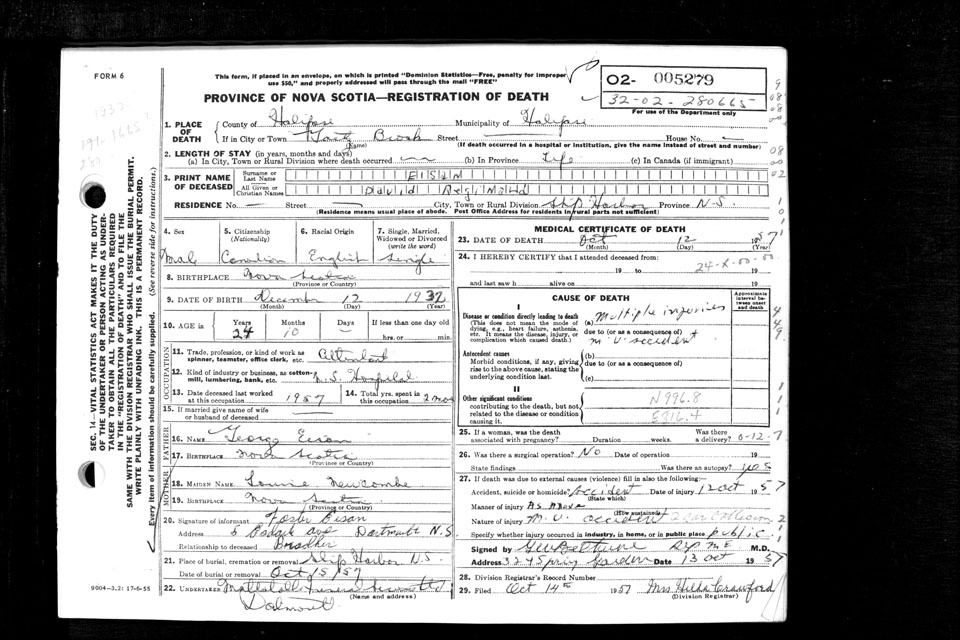 FORM 6
This form, if placed in an envelope, on which is printed "Dominion Statistics—Free, penalty for improper
use $50," and properly addressed will pass through the mail "FREE"
PROVINCE OF NOVA SCOTIA—REGISTRATION OF DEATH
O2- 005279
32-02-280665
For use of the Department only
1. PLACE OF DEATH
County of Halifax Municipality of Halifax
If in City or Town Brook Street — House No. —
(Name) (If death occurred in a hospital or institution, give the name instead of street and number)
2. LENGTH OF STAY (in years, months and days)
(a) In City, Town or Rural Division where death occurred — (b) In Province Life (c) In Canada (if immigrant)
3. PRINT NAME OF DECEASED
Surname or Last Name EISAN
All Given or Christian Names David Reginald
RESIDENCE No. — Street — City, Town or Rural Division Ship Harbor Province N.S.
(Residence means usual place of abode. Post Office Address for residents in rural parts not sufficient)
SEC. 14—VITAL STATISTICS ACT MAKES IT THE DUTY
OF THE UNDERTAKER OR PERSON ACTING AS UNDER-
TAKER TO OBTAIN ALL THE PARTICULARS REQUIRED
IN THE "REGISTRATION OF DEATH" AND TO FILE THE
SAME WITH THE DIVISION REGISTRAR WHO SHALL ISSUE THE BURIAL PERMIT.
WRITE PLAINLY WITH UNFADING INK. THIS IS A PERMANENT RECORD.
Every item of information should be carefully supplied. (See reverse side for instructions.)
4. Sex Male
5. Citizenship (Nationality) Canadian
6. Racial Origin English
7. Single, Married, Widowed or Divorced (write the word) Single
8. BIRTHPLACE Nova Scotia
(Province or Country)
9. DATE OF BIRTH December 12 1932
(Month) (Day) (Year)
10. AGE in Years 24 Months 10 Days — If less than one day old
hrs. or min.
OCCUPATION
11. Trade, profession, or kind of work as spinner, teamster, office clerk, etc. Attendant
12. Kind of industry or business, as cotton-mill, lumbering, bank, etc. N.S. Hospital
13. Date deceased last worked at this occupation 1957
14. Total yrs. spent in this occupation 2 mos
15. If married give name of wife or husband of deceased —
FATHER
16. NAME George Eisan
17. BIRTHPLACE Nova Scotia
(Province or Country)
MOTHER
18. MAIDEN NAME Newcombe
19. BIRTHPLACE Nova Scotia
(Province or Country)
20. Signature of informant Foster Eisan
Address 5 Ave Dartmouth N.S.
Relationship to deceased Brother
21. Place of burial, cremation or removal Ship Harbor N.S.
Date of burial or removal Oct 15/57
22. UNDERTAKER Funeral
(Name and address)
MEDICAL CERTIFICATE OF DEATH
23. DATE OF DEATH Oct 12 1957
(Month) (Day) (Year)
24. I HEREBY CERTIFY that I attended deceased from:
19 to 19
and last saw h alive on 19
CAUSE OF DEATH
Approximate interval between onset and death
I
Disease or condition directly leading to death
(This does not mean the mode of dying, e.g., heart failure, asthenia, etc. It means the disease, injury, or complication which caused death.)
(a) Multiple injuries
due to (or as a consequence of)
M.V. accident
Antecedent causes
Morbid conditions, if any, giving rise to the above cause, stating the underlying condition last.
(b)
due to (or as a consequence of)
(c)
II
Other significant conditions
contributing to the death, but not related to the disease or condition causing it.
N996.8
E816.4
25. If a woman, was the death associated with pregnancy? Duration weeks. Was there a delivery? 6-12-7
26. Was there surgical operation? No Date of operation 19
State findings Was there an autopsy? yes
27. If death was due to external causes (violence) fill in also the following:—
Accident, suicide or homicide? accident Date of injury 12 Oct 1957
(State which)
Manner of injury As Above
(How sustained)
Nature of injury M.V. accident 2 car Collision
Specify whether injury occurred in industry, in home, or in public place public
Signed by M.D.
Address 324 Spring Garden Date 13 Oct 1957
28. Division Registrar's Record Number
29. Filed Oct 14th 1957 Mrs Hilda Crawford
(Division Registrar)
9004-3.2: 17-6-55